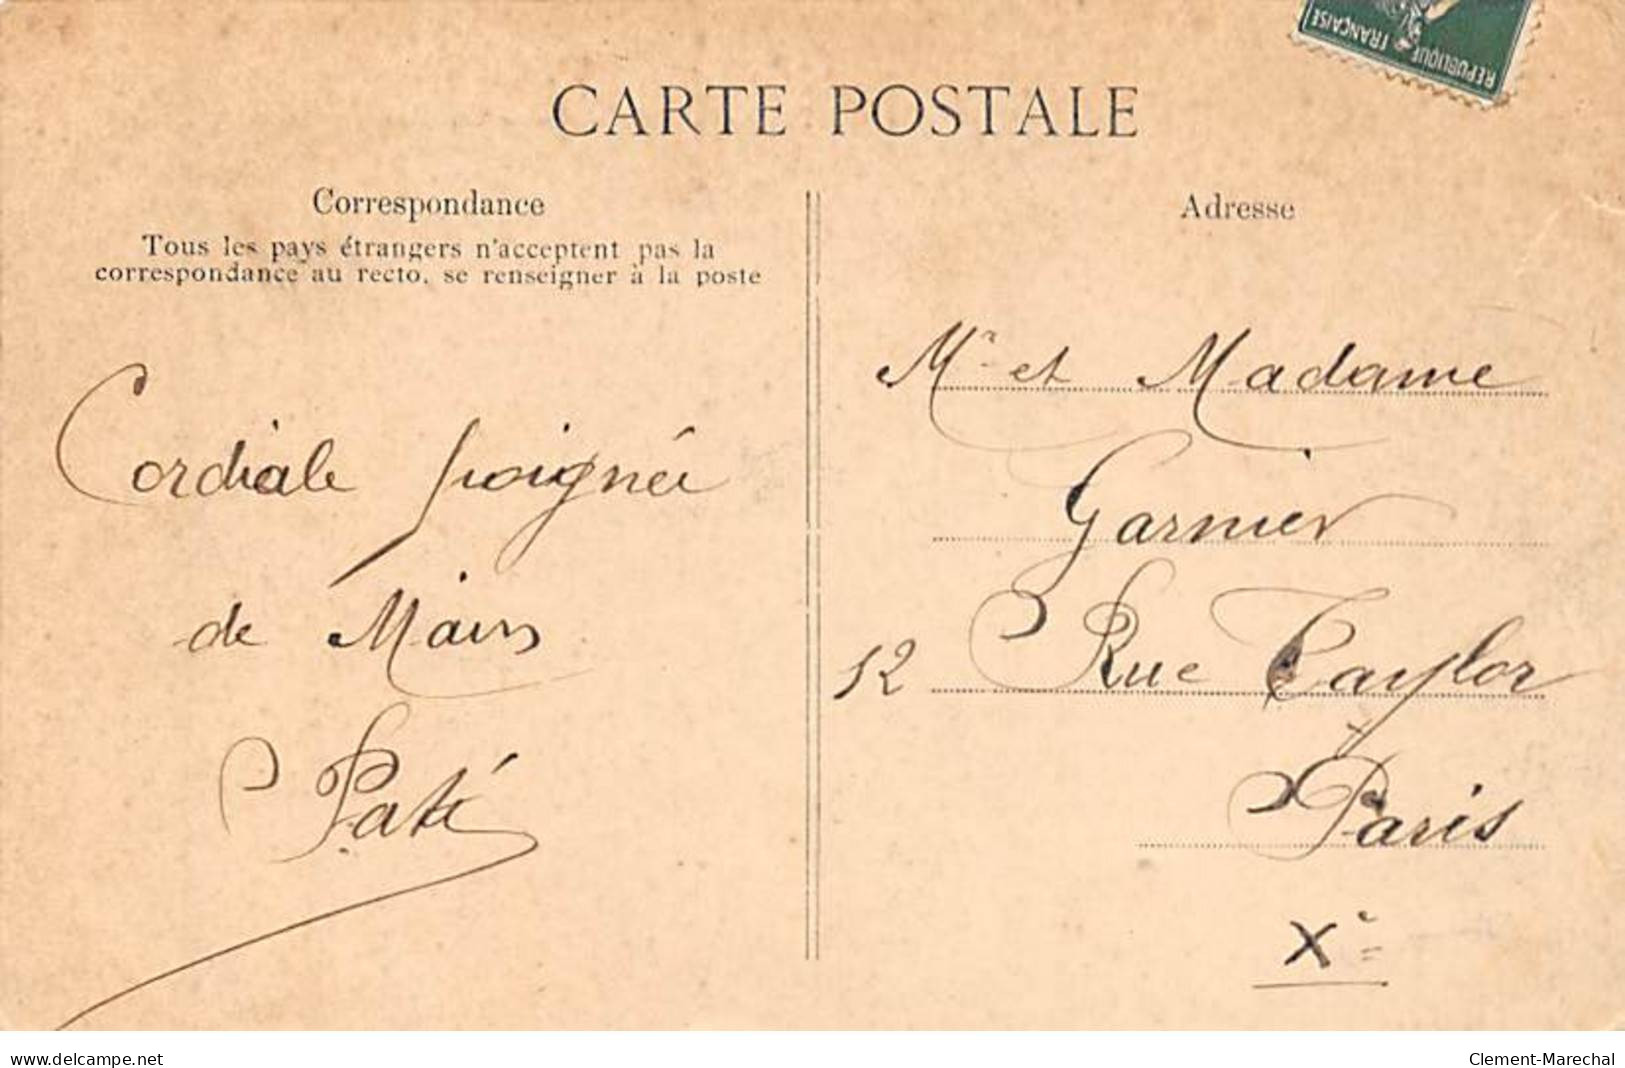 REPUBLIQUE FRANÇAISE
CARTE POSTALE
Correspondance
Tous les pays étrangers n'acceptent pas la
correspondance au recto, se renseigner à la poste
Cordiale poignée
de Mains
Paté
Adresse
Mr et Madame
Garnier
12 Rue Taylor
Paris
Xe
www.delcampe.net
Clement-Marechal